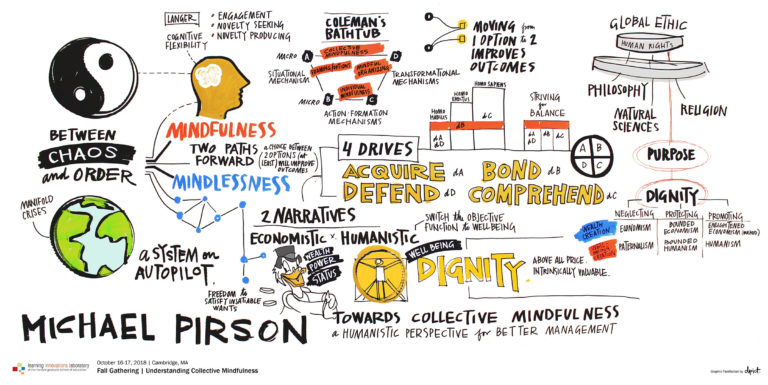 LANGER
• ENGAGEMENT
• NOVELTY SEEKING
• NOVELTY PRODUCING
COGNITIVE
FLEXIBILITY
COLEMAN'S
BATHTUB
MACRO
A
COLLECTIVE
MINDFULNESS
D
SITUATIONAL
MECHANISM
MINDFUL
ORGANIZING
TRANSFORMATIONAL
MECHANISMS
INDIVIDUAL
MINDFULNESS
MICRO
B
C
ACTION-FORMATION
MECHANISMS
MOVING from
1 OPTION to 2
IMPROVES
OUTCOMES
GLOBAL ETHIC
HUMAN RIGHTS
PHILOSOPHY
NATURAL
SCIENCES
RELIGION
PURPOSE
DIGNITY
NEGLECTING
PROTECTING
PROMOTING
WEALTH
CREATION
ECONOMISM
BOUNDED
ECONOMISM
ENLIGHTENED
ECONOMISM
CREATION
PATERNALISM
BOUNDED
HUMANISM
HUMANISM
BETWEEN
CHAOS
and ORDER
MINDFULNESS
TWO PATHS
FORWARD
a CHOICE BETWEEN
2 OPTIONS (at
LEAST) WILL IMPROVE
OUTCOMES
MINDLESSNESS
HOMO
HABILIS
HOMO
ERECTUS
HOMO SAPIENS
dA
dD
dB
dC
STRIVING
for
BALANCE
dA
dD
dB
dC
A
B
D
C
4 DRIVES
ACQUIRE dA
BOND dB
DEFEND dD
COMPREHEND dC
MANIFOLD
CRISES
a SYSTEM on
AUTOPILOT
2 NARRATIVES
ECONOMISTIC v HUMANISTIC
WEALTH
POWER
STATUS
FREEDOM to
SATISFY INSATIABLE
WANTS
SWITCH the OBJECTIVE
FUNCTION to WELL BEING
WELL BEING
DIGNITY
ABOVE ALL PRICE.
INTRINSICALLY VALUABLE.
MICHAEL PIRSON
TOWARDS COLLECTIVE MINDFULNESS
a HUMANISTIC PERSPECTIVE for BETTER MANAGEMENT
learning innovations laboratory
October 16-17, 2018 | Cambridge, MA
Fall Gathering | Understanding Collective Mindfulness
Graphic Facilitation by dpict